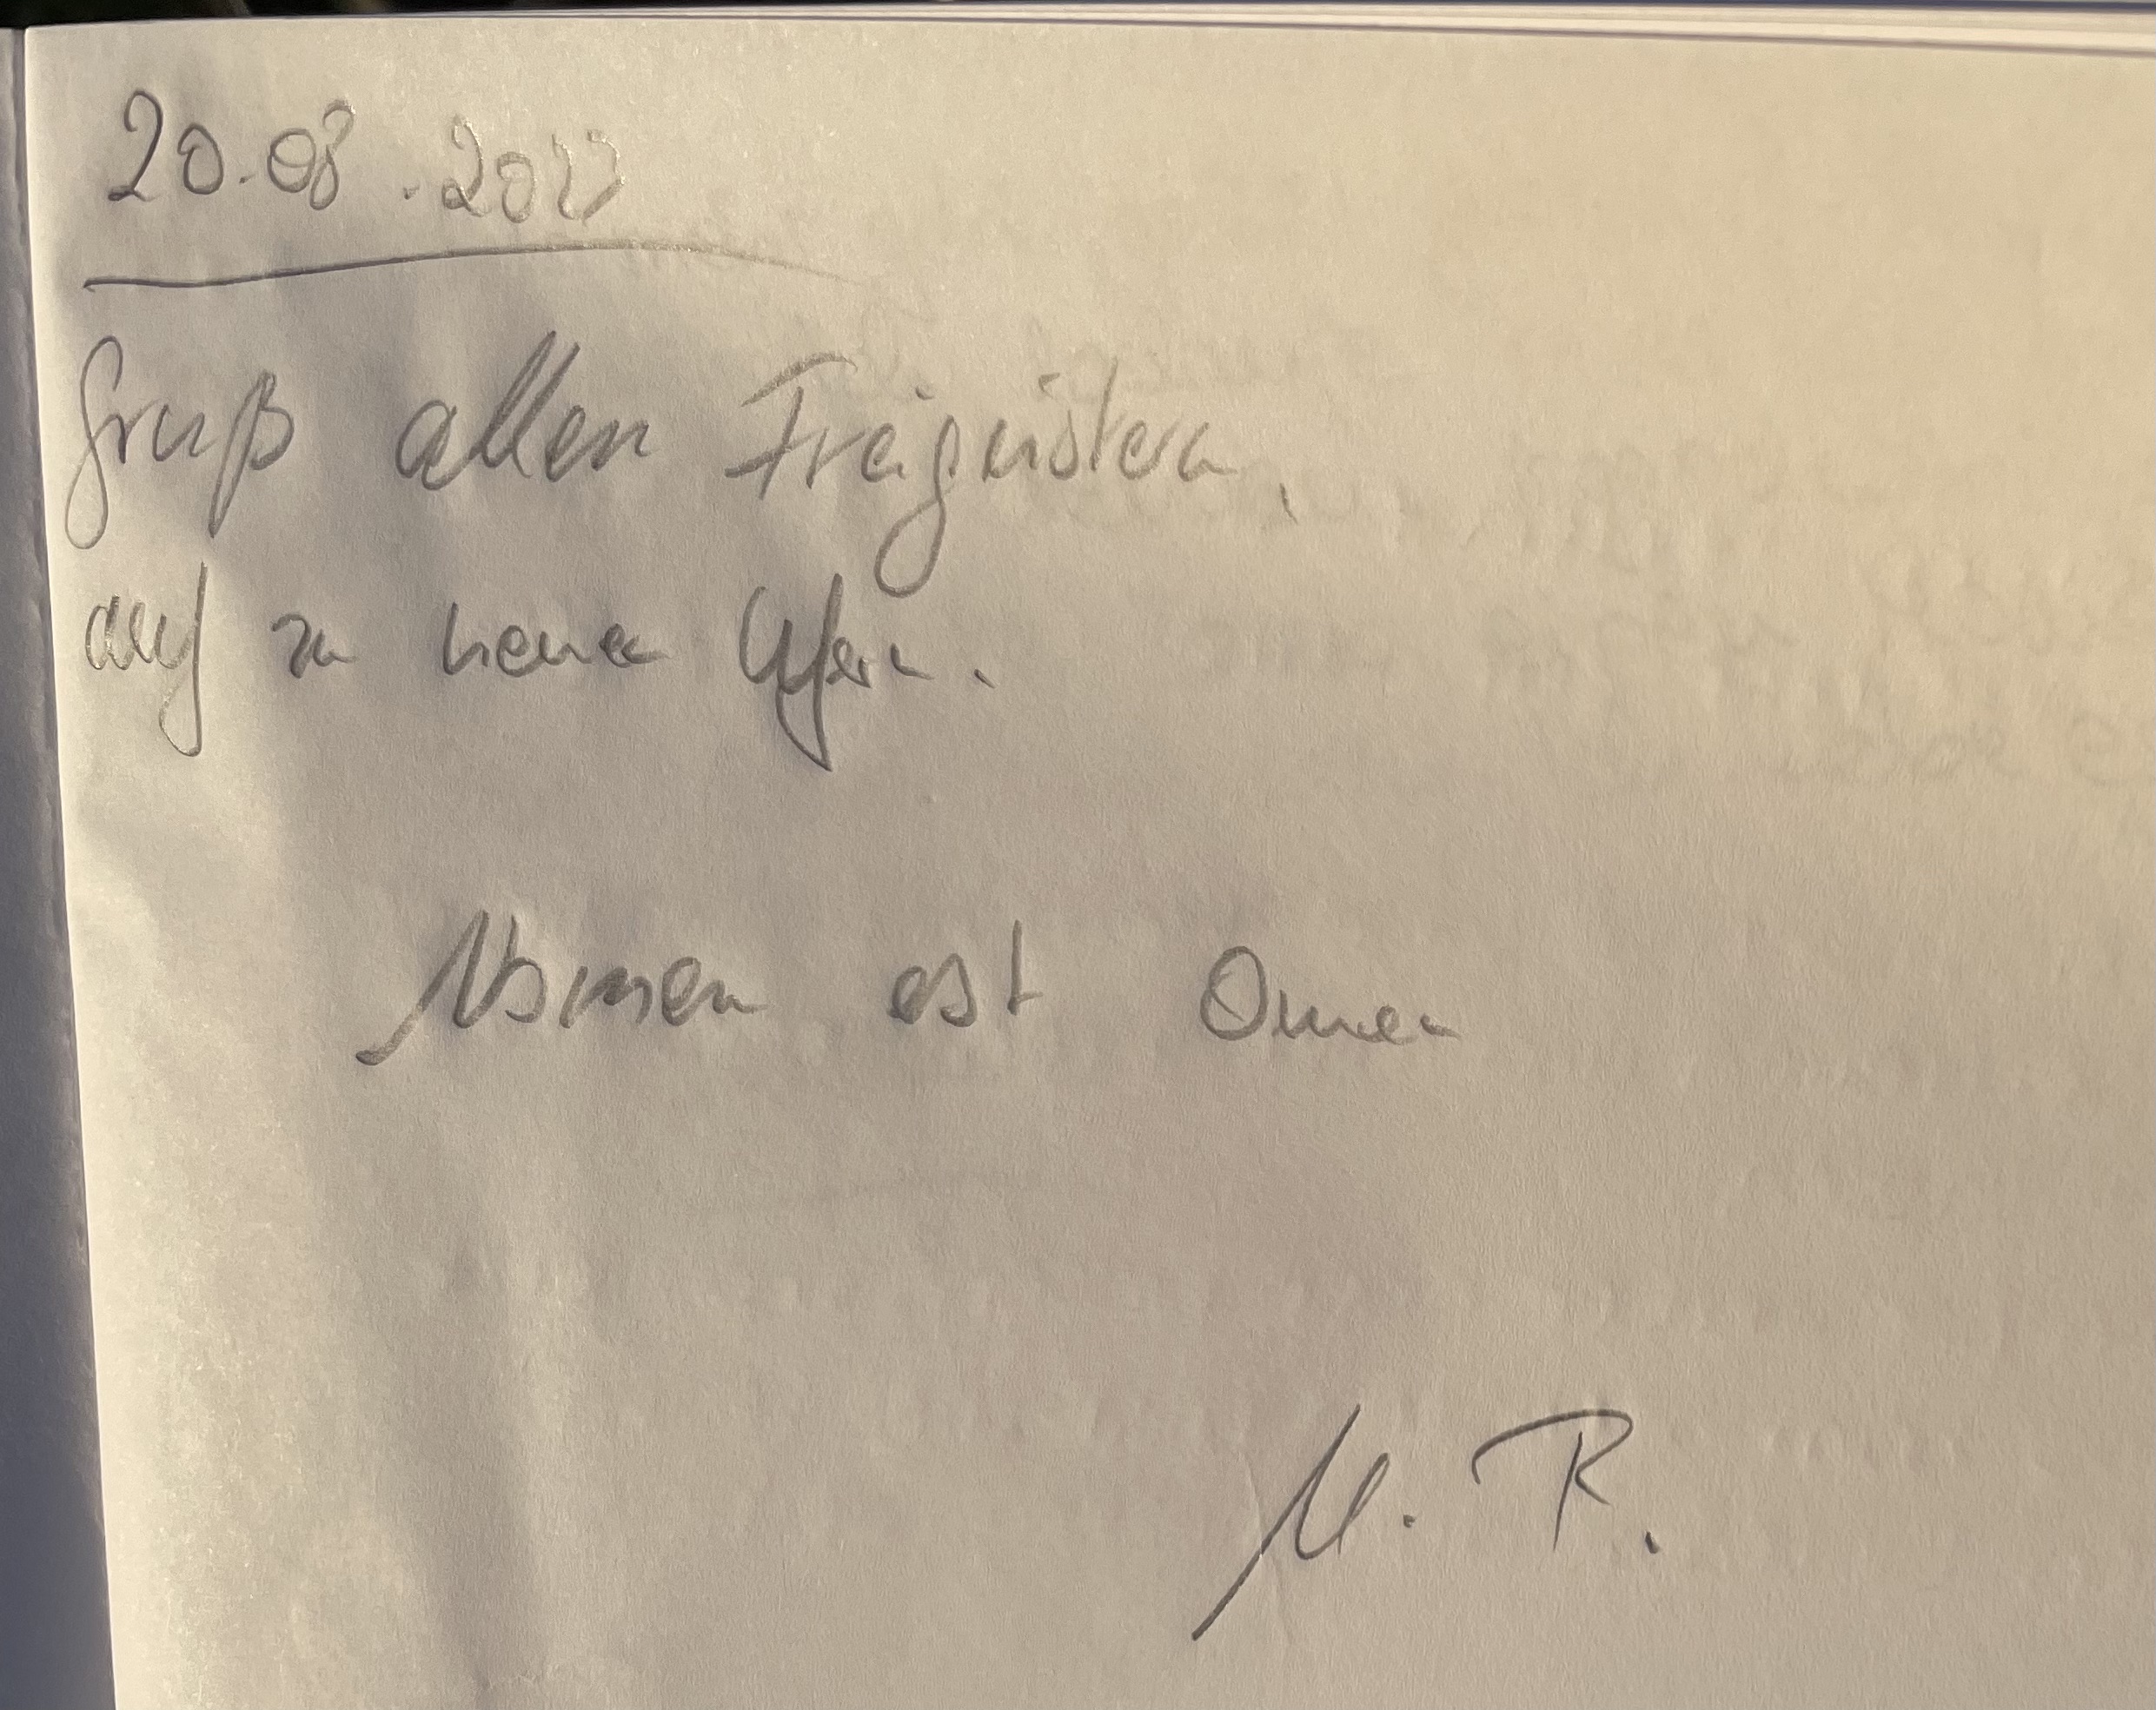 20.08.2023
Gruß allen Freigeistern,
auf zu neuen Ufern.
Nomen est Omen
M. R.